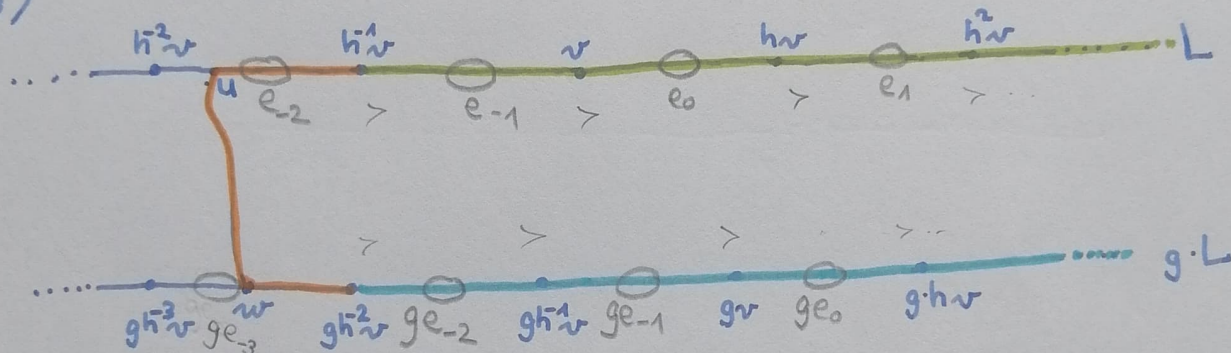 h⁻²v h⁻¹v v hv h²v L
u e₋₂ > e₋₁ > e₀ > e₁ > ...
> > > > ...
g·L
gh⁻³v ge₋₃ w gh⁻²v ge₋₂ gh⁻¹v ge₋₁ gv ge₀ g·hv